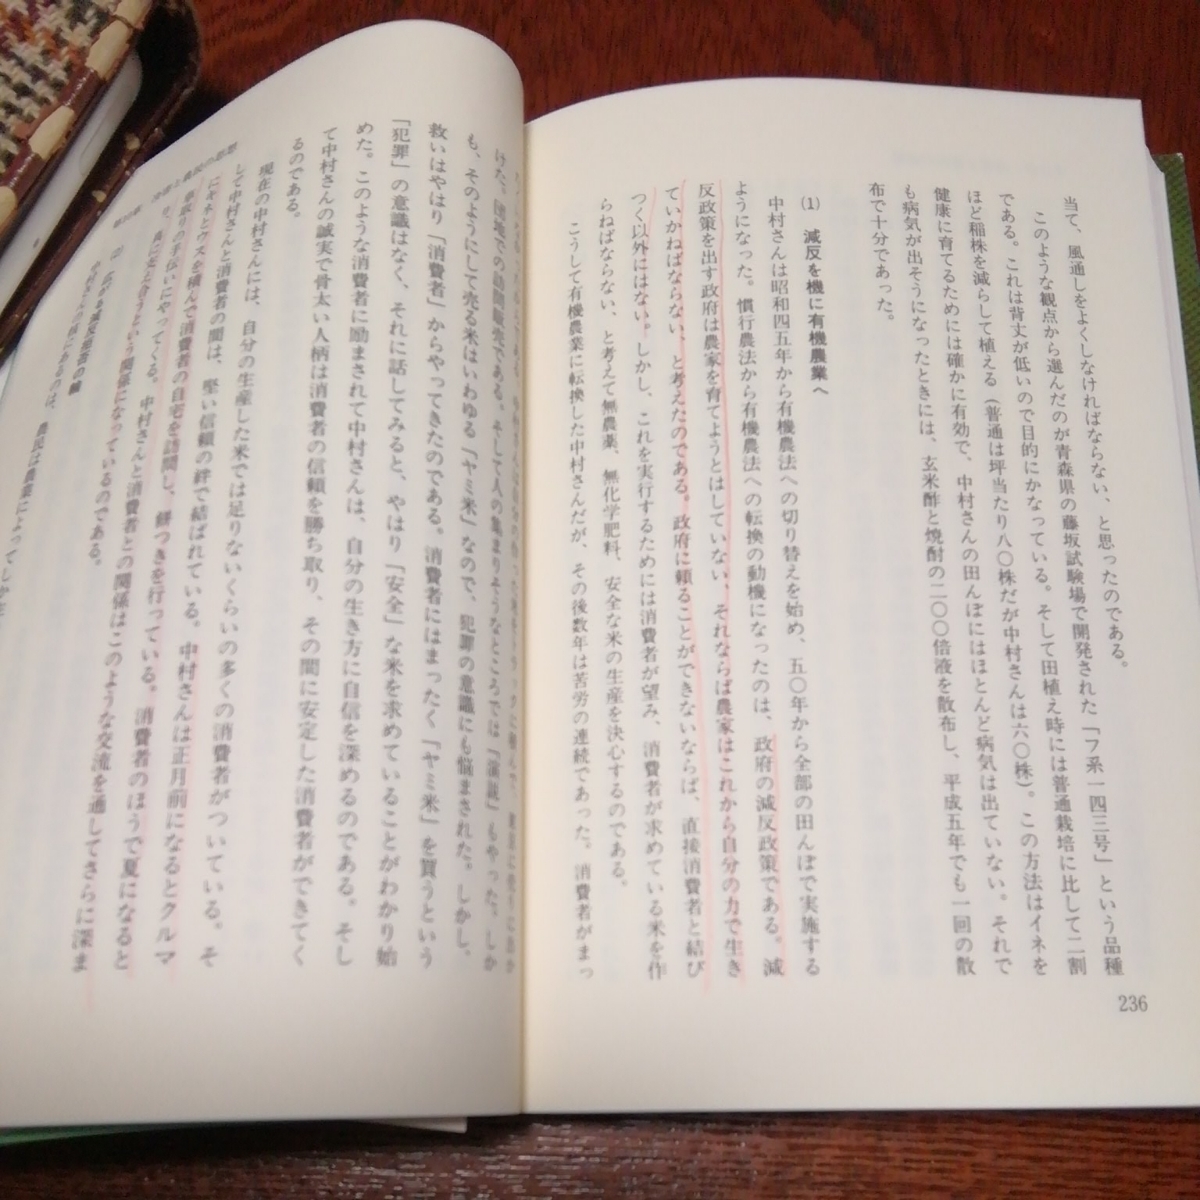 236
当て、風通しをよくしなければならない、と思ったのである。
このような観点から選んだのが青森県の藤坂試験場で開発された「フ系一四三号」という品種
である。これは背丈が低いので目的にかなっている。そして田植え時には普通栽培に比して二割
ほど稲株を減らして植える(普通は坪当たり八〇株だが中村さんは六〇株)。この方法はイネを
健康に育てるためには確かに有効で、中村さんの田んぼにはほとんど病気は出ていない。それで
も病気が出そうになったときには、玄米酢と焼酎の二〇〇倍液を散布し、平成五年でも一回の散
布で十分であった。
(1) 減反を機に有機農業へ
中村さんは昭和四五年から有機農法への切り替えを始め、五〇年から全部の田んぼで実施する
ようになった。慣行農法から有機農法への転換の動機になったのは、政府の減反政策である。減
反政策を出す政府は農家を育てようとはしていない、それならば農家はこれから自分の力で生き
ていかねばならない、と考えたのである。政府に頼ることができないならば、直接消費者と結び
つく以外にはない。しかし、これを実行するためには消費者が望み、消費者が求めている米を作
らねばならない、と考えて無農薬、無化学肥料、安全な米の生産を決心するのである。
こうして有機農業に転換した中村さんだが、その後数年は苦労の連続であった。消費者がまっ
けた。団地での訪問販売である。そして人の集まりそうなところでは「演説」もやった。しか
も、そのようにして売る米はいわゆる「ヤミ米」なので、犯罪の意識にも悩まされた。しかし、
救いはやはり「消費者」からやってきたのである。消費者にはまったく「ヤミ米」を買うという
「犯罪」の意識はなく、それに話してみると、やはり「安全」な米を求めていることがわかり始
めた。このような消費者に励まされて中村さんは、自分の生き方に自信を深めるのである。そし
て中村さんの誠実で骨太い人柄は消費者の信頼を勝ち取り、その間に安定した消費者ができてく
るのである。
現在の中村さんには、自分の生産した米では足りないくらいの多くの消費者がついている。そ
して中村さんと消費者の間は、堅い信頼の絆で結ばれている。中村さんは正月前になるとクルマ
にキネとウスを積んで消費者の自宅を訪問し、餅つきを行っている。消費者のほうで夏になると
草取りの手伝いにやってくる。中村さんと消費者との関係はこのような交流を通してさらに深ま
関係になっているのである。
(2) 広がる減反拒否の輪
農民は農業によってしか生